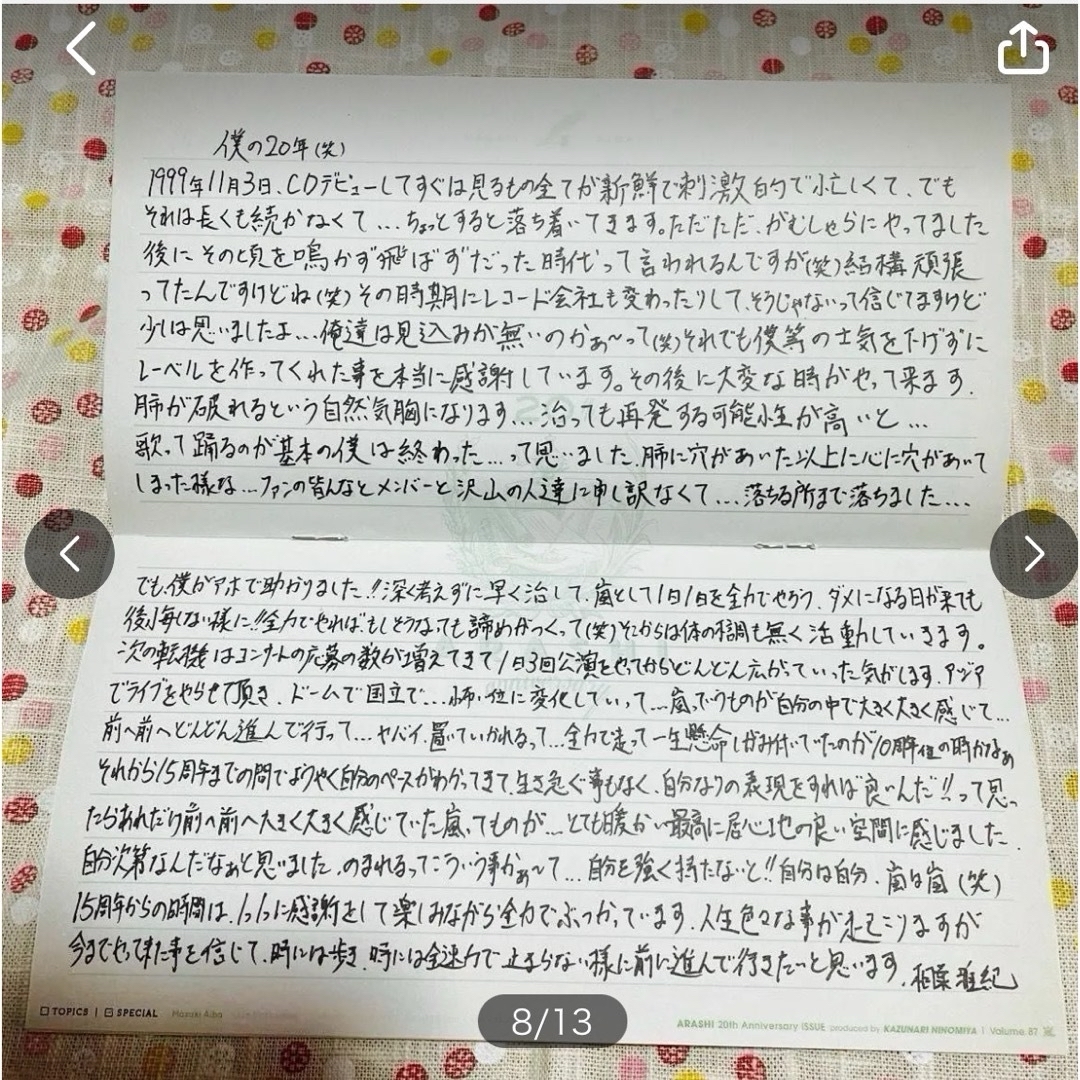 僕の20年(笑)
1999年11月3日、CDデビューしてすぐは見るもの全てが新鮮で刺激的で忙しくて、でも
それは長くも続かなくて...ちょっとすると落ち着いてきます。ただただ、がむしゃらにやってました
後にその頃を鳴かず飛ばずだった時代って言われるんですが(笑)結構頑張
ってたんですけどね(笑)その時期にレコード会社も変わったりして、そうじゃないって信じてますけど
少しは思いましたよ...俺達は見込みが無いのかぁ〜って(笑)それでも僕等の士気を下げずに
レーベルを作ってくれた事を本当に感謝しています。その後に大変な時がやって来ます.
肺が破れるという自然気胸になります...治っても再発する可能性が高いと...
歌って踊るのが基本の僕は終わった...って思いました.肺に穴があいた以上に心に穴があいて
しまった様な...ファンの皆んなとメンバーと沢山の人達に申し訳なくて...落ちる所まで落ちました...
でも、僕がアホで助かりました!!深く考えずに早く治して、嵐として1日1日を全力でやろう、ダメになる日が来ても
後悔しない様に!!全力でやれば、もしそうなっても諦めがつくって(笑)そこからは体の不調も無く活動していきます。
次の転機はコンサートの応募の数が増えてきて1日3回公演をやってからどんどん広がっていった気がします.アジア
でライブをやらせて頂き、ドームで国立で...に変化していって...嵐ってうものが自分の中で大きく大きく感じて...
前へ前へどんどん進んで行って...ヤバイ、置いていかれるって...全力で走って一生懸命しがみ付いていたのが10周年位の時かなぁ
それから15周年までの間でようやく自分のペースがわかってきて、生き急ぐ事もなく、自分なりの表現をすれば良いんだ!!って思っ
たらあれだけ前へ前へ大きく大きく感じていた嵐ってものが...とても暖かい最高に居心地の良い空間に感じました.
自分次第なんだなぁと思いました.のまれるってこういう事かぁ〜て...自分を強く持たないと!!自分は自分、嵐は嵐(笑)
15周年からの時間は、1つ1つに感謝をして楽しみながら全力でぶつかっています.人生色々な事が起こりますが
今までやって来た事を信じて、時には歩き、時には全速力で止まらない様に前に進んで行きたいと思います.相葉雅紀
TOPICS | SPECIAL Masaki Aiba
8/13
ARASHI 20th Anniversary ISSUE produced by KAZUNARI NINOMIYA | Volume.87